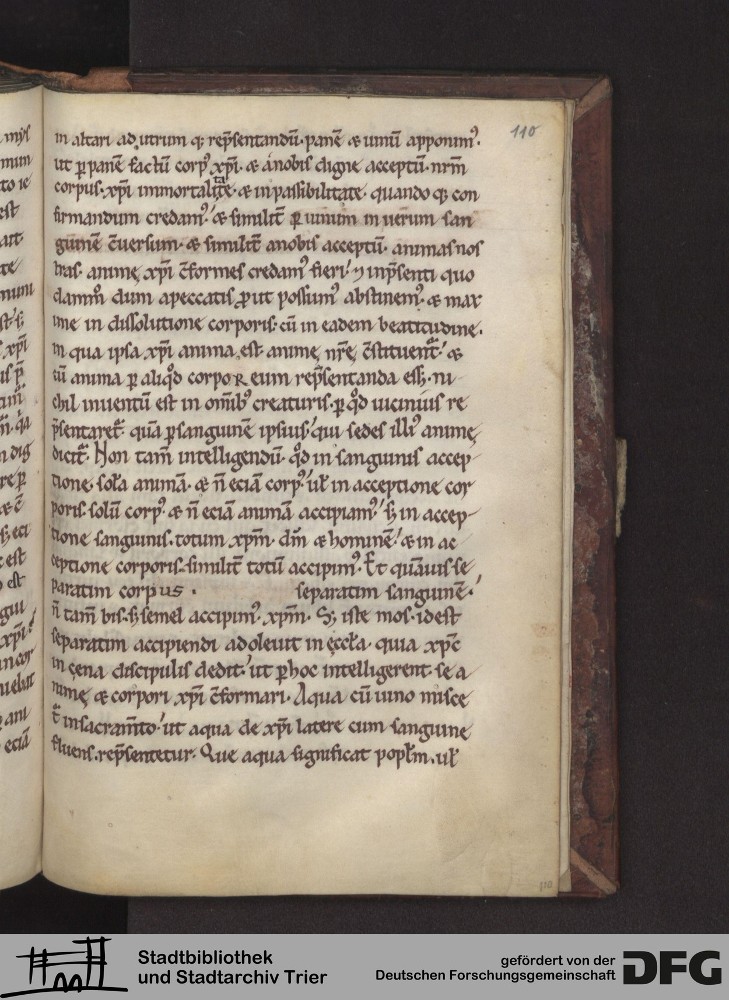 110
in altari ad utrum q; rep̄sentandū· panē & uinū apponim᾿·
ut p̱ panē factū corp᾿ xp̄i· & a nobis digne acceptū· nrm̄
corpus· xp̄i immortalitate· & inpassibilitate· quando q; con
firmandum credam᾿· & similit̄ p̱ uinum in uerum san
guinē c̄uersum· & similit̄ a nobis acceptū· animas nos
tras· animę xp̄i c̄formes credam᾿ fieri· ⁊ inp̄senti quo
dammō dum a peccatis ꝓut possum᾿ abstinem᾿· & max
ime in dissolutione corporis· cū in eadem beatitudine·
in qua ipsa xp̄i anima est· animę nr̄ę c̄stituent᷑· &
cū anima p̱ aliq̊d corporeum rep̄sentanda ess&· ni
chil inuentū est in omīb᾿ creaturis· p̱ q̊d uicinius re
p̄sentaret᷑· quā p̱ sanguinē ipsius· qui sedes illi᾿ animę
dicit᷑. Non tam̄ intelligendū· q̊d in sanguinis accep
tione· sola animā· & n̄ eciā corp᾿· ul̵ in acceptione cor
poris· solū corp᾿· & n̄ eciā animā accipiam᾿· s; in accep-
tione sanguinis· totum xp̄m· dm̄ & hominē· & in ac
ceptione corporis· similit̄ totū accipim᾿. Et quāuis se
paratim corpus· separatim sanguinē·
n̄ tam̄ bis· s; semel accipim᾿ xp̄m· S; iste mos· idest
separatim accipiendi adoleuit in ęccl̵a· quia xp̄c
in cena discipulis dedit· ut p̱ hoc intelligerent· se a
nimę & corpori xp̄i c̄formari· Aqua cū uino misce
t᷑ in sacram̄to· ut aqua de xp̄i latere cum sanguine
fluens· rep̄sentetur. Que aqua significat popl̵m· ul̵
110
Stadtbibliothek
und Stadtarchiv Trier
gefördert von der
Deutschen Forschungsgemeinschaft
DFG